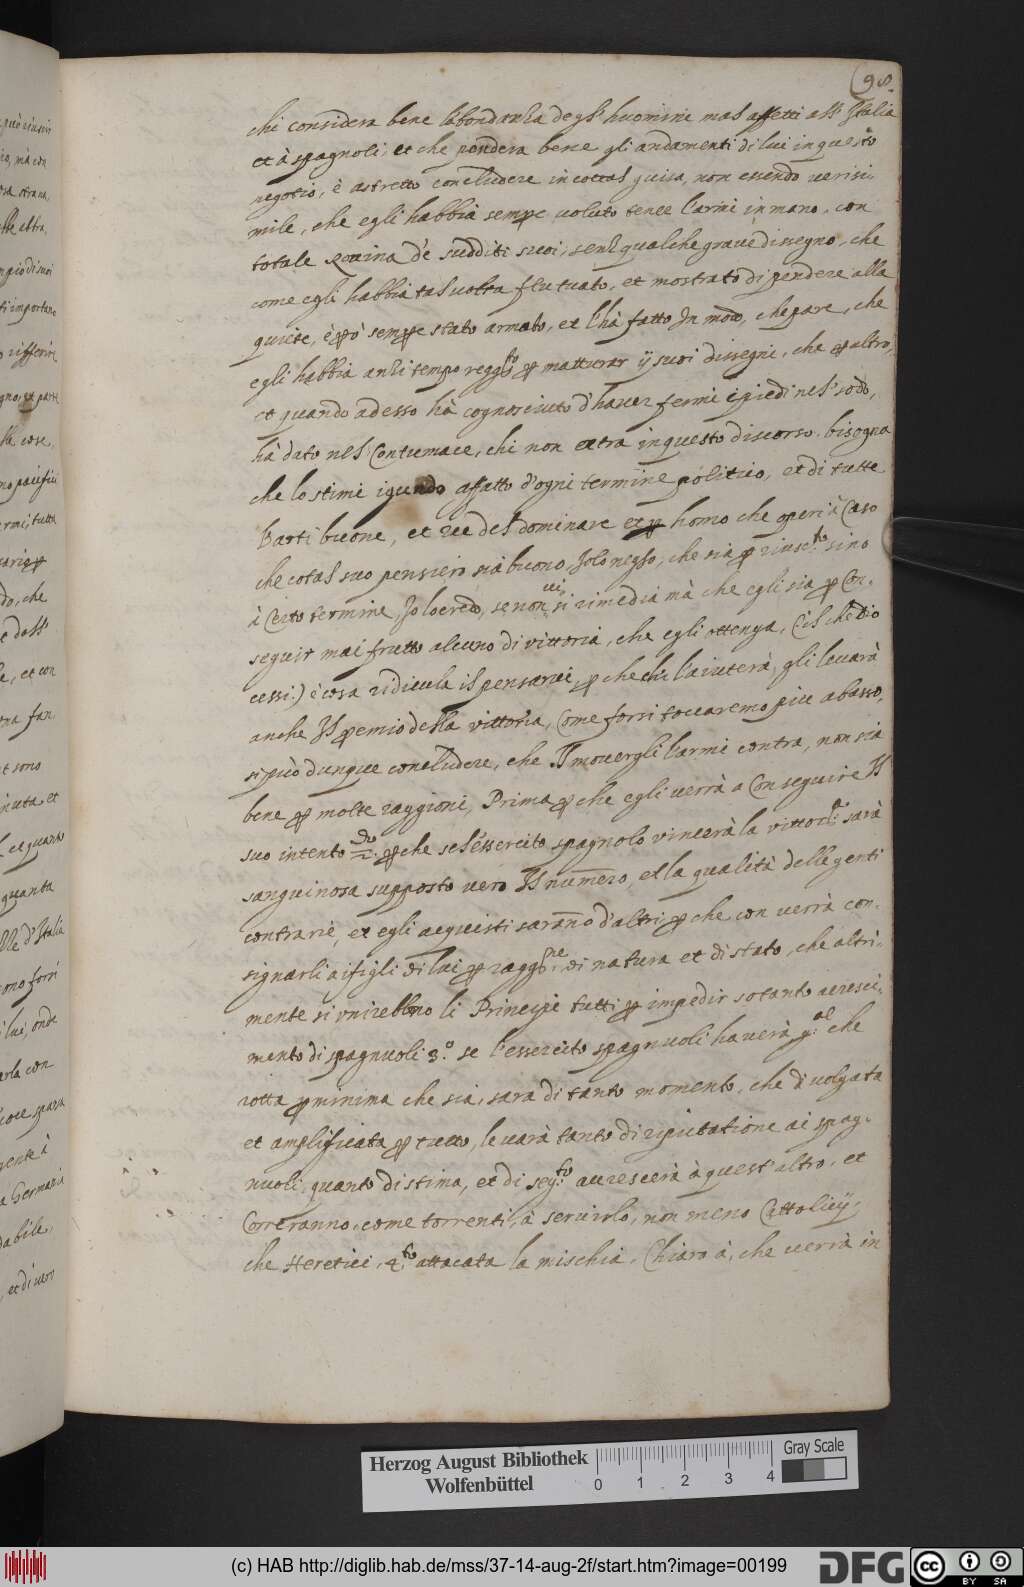 98.
chi considera bene l'abondanza degl'huomini mal affetti all'Italia
et à spagnoli, et che pondera bene gli andamenti di lui in questo
negotio, è astretto concludere in cottal guisa, non essendo verisi-
mile, che egli habbia sempre voluto tener l'armi in mano, con
totale Rovina de sudditi suoi, senz qualche grave disegno, che
come egli habbia tal volta fluttuato, et mostrato di pendere alla
quiete, è però sempre stato armato, et l'hà fatto In modo, che pare, che
egli habbia anzi tempo per matturar ij suoi dissegni, che per altro,
et quando adesso hà cognosciuto d'haver fermi i piedi nel sodo,
hà dato nel Contumace, chi non entra in questo discorso, bisogna
che lo stimi ignudo affatto d'ogni termine politico, et di tutte
l'arti buone, et ree del dominare homo che operi à Caso
che cotal suo pensiero sia buono, Jo lo nego, che sia per riusc.to sino
à Certo termine, Jo lo credo, se non vi si rimedia mà che egli sia per Con-
seguir mai frutto alcuno di vittoria, che egli ottenga, (il che Dio
cessi) è cosa ridicula il pensarvi, per che chi l'aiuterà, gli levarà
anche Il premio della vittoria, Come forsi toccaremo piu abasso,
si può dunque concludere, che Il movergli l'armi contra, non sia
bene per molte raggioni, Prima per che egli verrà a Conseguire Il
suo intento 2.do perche se l'essercito spagnolo vincerà la vittoria sarà
sanguinosa supposto vero Il numero, et la qualità delle genti
contrarie, et egli acquisti saranno d'altri per che con verrà con-
signarli a i figli di lui per ragg.ne di natura et di stato, che altri-
mente si unirebbno li Principi tutti per impedir sotanto accresci-
mento di spagnuoli 3.o se l'essercito spagnuoli haverà q.al che
rotta per minima che sia, sara di tanto momento, che divolgata
et amplificata per tutto, levarà tanto di riputatione ai spag-
nuoli, quanto di stima, et di seg.to accrescerà à quest'altro, et
Correranno, come torrenti, à servirlo, non meno Cattolicij,
che Heretici, 4.to attacata la mischia, Chiaro è, che verrà in
Herzog August Bibliothek
Wolfenbüttel
0 1 2 3 4
Gray Scale
(c) HAB http://diglib.hab.de/mss/37-14-aug-2f/start.htm?image=00199
DFG
cc
BY SA